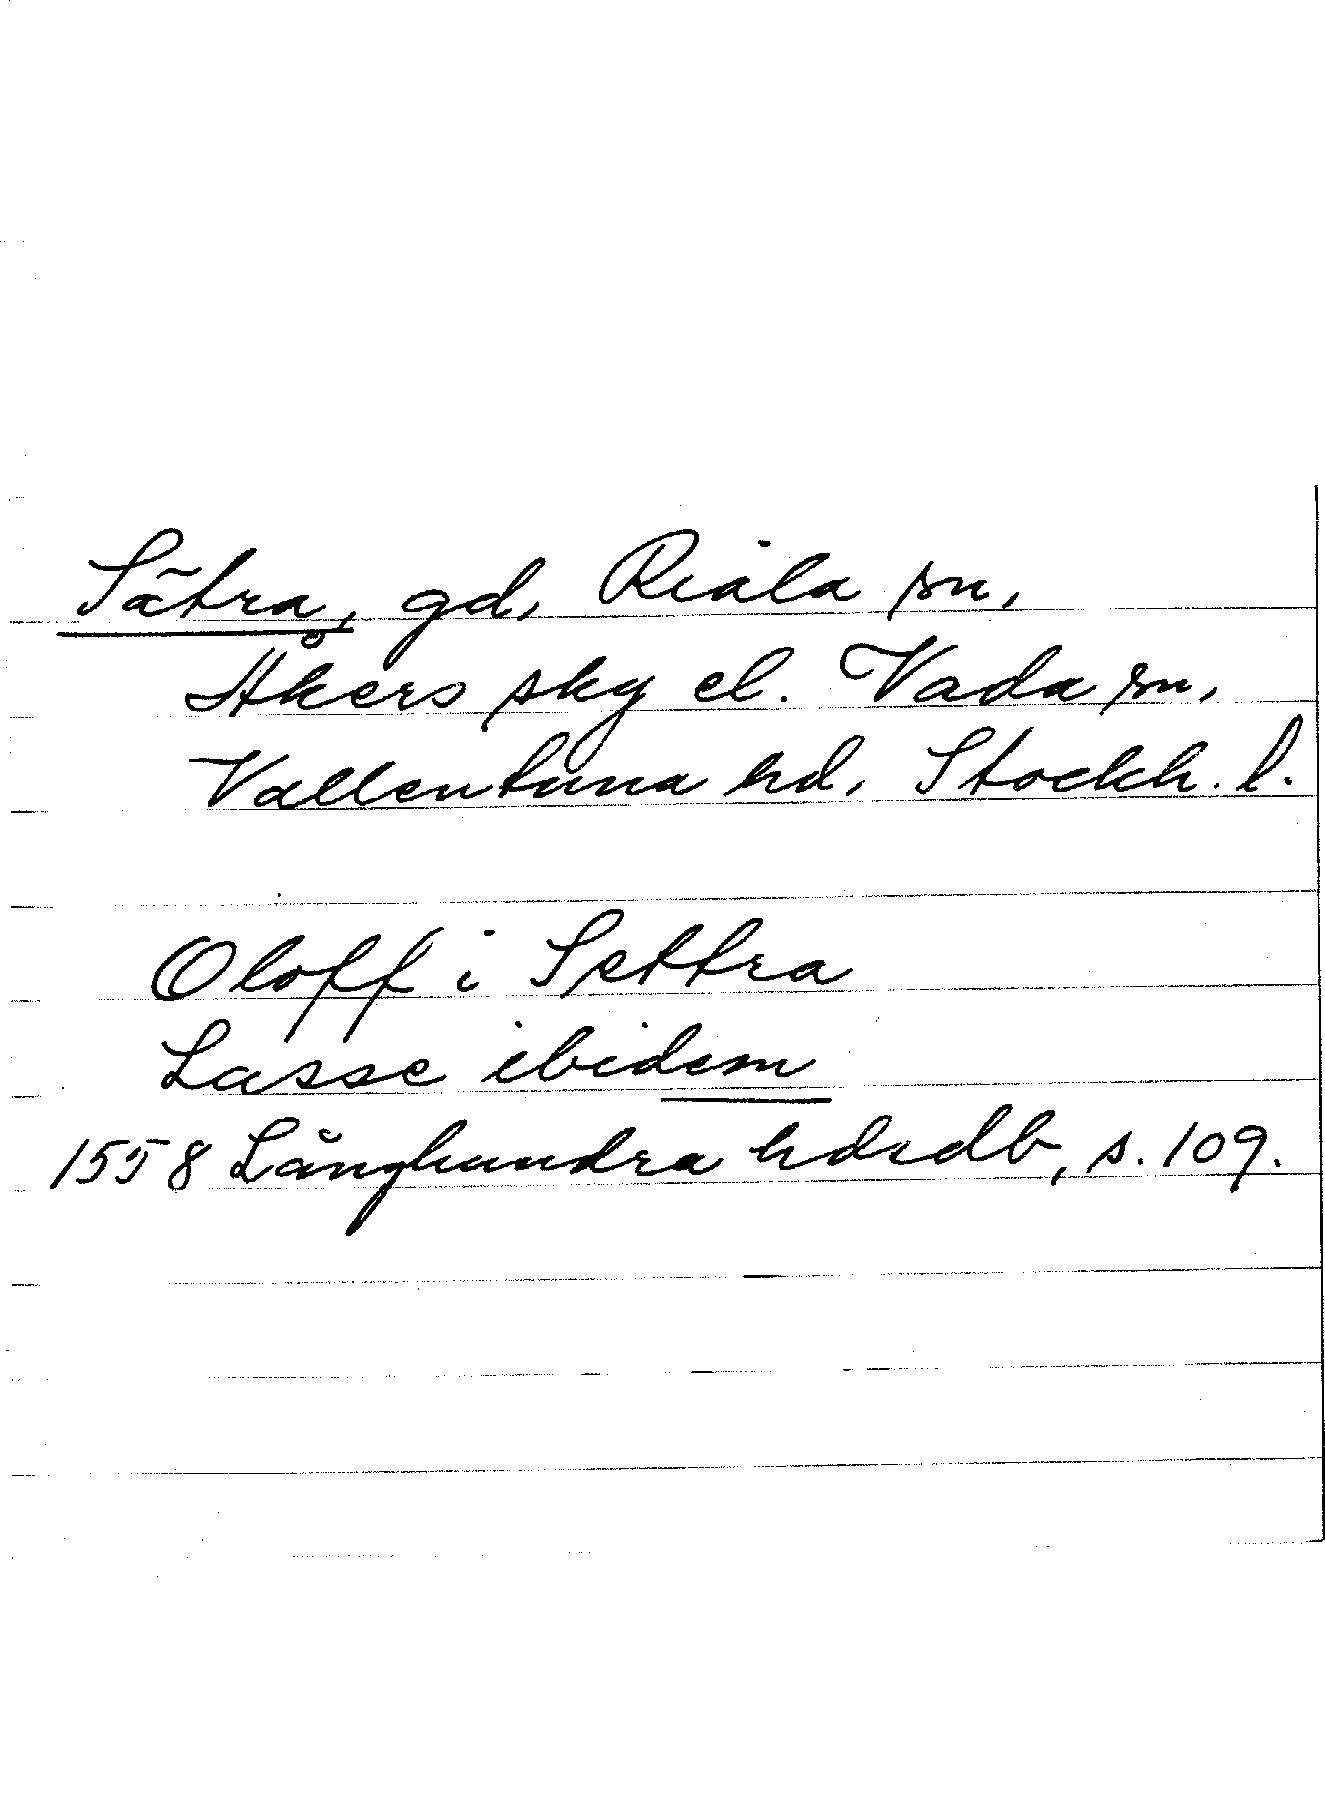 Sätra, gd, Riala sn,
Åkers sky el. Vada sn,
Vallentuna hd, Stockh. l.
Oloff i Settra
Lasse ibidem
1558 Långhundra hdsdb, s. 109.